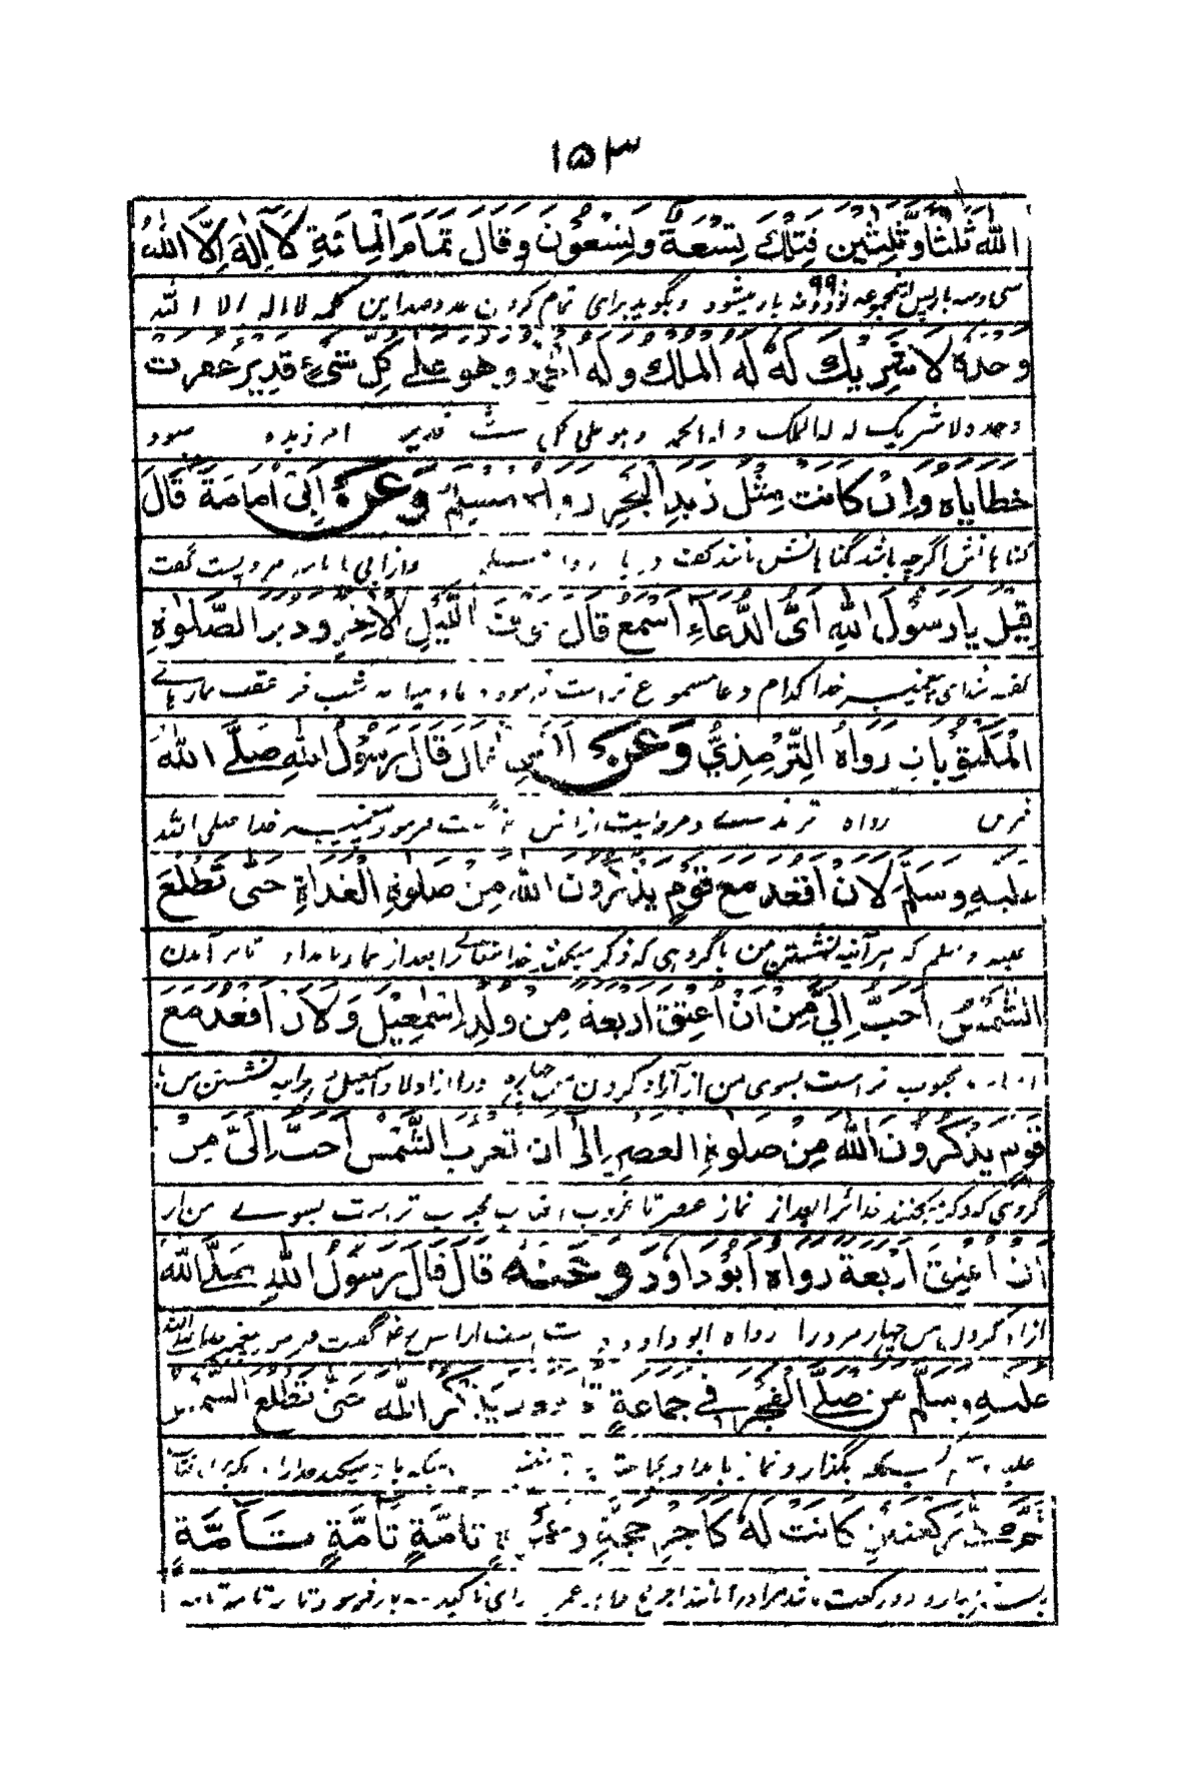 ١٥٣
الله ثَلٰثًا وَّثَلٰثِيْنَ فَتِلْكَ تِسْعَةٌ وَتِسْعُوْنَ وَقَالَ تَمَامَ الْمِائَةِ لَآ اِلٰهَ اِلَّا اللهُ
سی و سه بار پس اینمجموعه نود و نه بار میشود و بگوید برای تمام کردن عدد صد این کلمه لا اله الا الله
وَحْدَهٗ لَا شَرِيْكَ لَهٗ لَهُ الْمُلْكُ وَلَهُ الْحَمْدُ وَهُوَ عَلٰے كُلِّ شَیْءٍ قَدِيْرٌ غُفِرَتْ
وحده لا شریک له له الملک و له الحمد و هو علی کل شئ قدیر امرزیده میشود
خَطَايَاهُ وَاِنْ كَانَتْ مِثْلَ زَبَدِ الْبَحْرِ رَوَاهُ مُسْلِمٌ وَعَنْ اَبِیْ اُمَامَةَ قَالَ
گناهانش اگرچه باشد گناهانش مانند کف دریا رواه مسلم و از ابی امامه مرویست گفت
قِيْلَ يَا رَسُوْلَ اللهِ اَیُّ الدُّعَآءِ اَسْمَعُ قَالَ جَوْفَ اللَّيْلِ الْاٰخِرِ وَدُبُرَ الصَّلَوٰةِ
گفته شد ای پیغمبر خدا کدام دعا مسموع تر است فرمود دعاء میانه شب و عقب نمازهائے
الْمَكْتُوْبَاتِ رَوَاهُ التِّرْمِذِیُّ وَعَنْ اَنَسٍ قَالَ قَالَ رَسُوْلُ اللهِ صَلَّے اللهُ
فرض رواه ترمذی و مرویست از انس گفت فرمود پیغمبر خدا صلی الله
عَلَيْهِ وَسَلَّمَ لَاَنْ اَقْعُدَ مَعَ قَوْمٍ يَذْكُرُوْنَ اللهَ مِنْ صَلٰوةِ الْغَدَاةِ حَتّٰی تَطْلُعَ
علیه و سلم که هر آئینه نشستن من با گروهی که ذکر میکنند خدا تعالے را بعد از نماز بامداد تا بر آمدن
الشَّمْسُ اَحَبُّ اِلَیَّ مِنْ اَنْ اُعْتِقَ اَرْبَعَةً مِنْ وُلْدِ اِسْمٰعِيْلَ وَلَاَنْ اَقْعُدَ مَعَ
محبوب تر است بسوی من از آزاد کردن من چهار را از اولاد اسمعیل و هرآینه نشستن من با
قَوْمٍ يَذْكُرُوْنَ اللهَ مِنْ صَلٰوةِ الْعَصْرِ اِلٰی اَنْ تَغْرُبَ الشَّمْسُ اَحَبُّ اِلَیَّ مِنْ
گروهی که ذکر میکنند خدا را بعد از نماز عصر تا غروب افتاب محبوب تر است بسوے من از
اَنْ اُعْتِقَ اَرْبَعَةً رَوَاهُ اَبُوْ دَاوٗدَ وَعَنْهُ قَالَ قَالَ رَسُوْلُ اللهِ صَلَّے اللهُ
ازاد کردن من چهار مرد را رواه ابو داود از انس گفت فرمود پیغمبر صلے الله
عَلَيْهِ وَسَلَّمَ مَنْ صَلَّے الْفَجْرَ فِیْ جَمَاعَةٍ ثُمَّ قَعَدَ يَذْكُرُ اللهَ حَتّٰی تَطْلُعَ الشَّمْسُ
علیه کسیکه بگذارد نماز بامداد بجماعت
ثُمَّ صَلّٰے رَكْعَتَيْنِ كَانَتْ لَهٗ كَاَجْرِ حَجَّةٍ وَعُمْرَةٍ تَامَّةٍ تَامَّةٍ تَآمَّةٍ
پستر بگذارد دو رکعت باشد مر او را مانند اجر حج و عمره برای تاکید